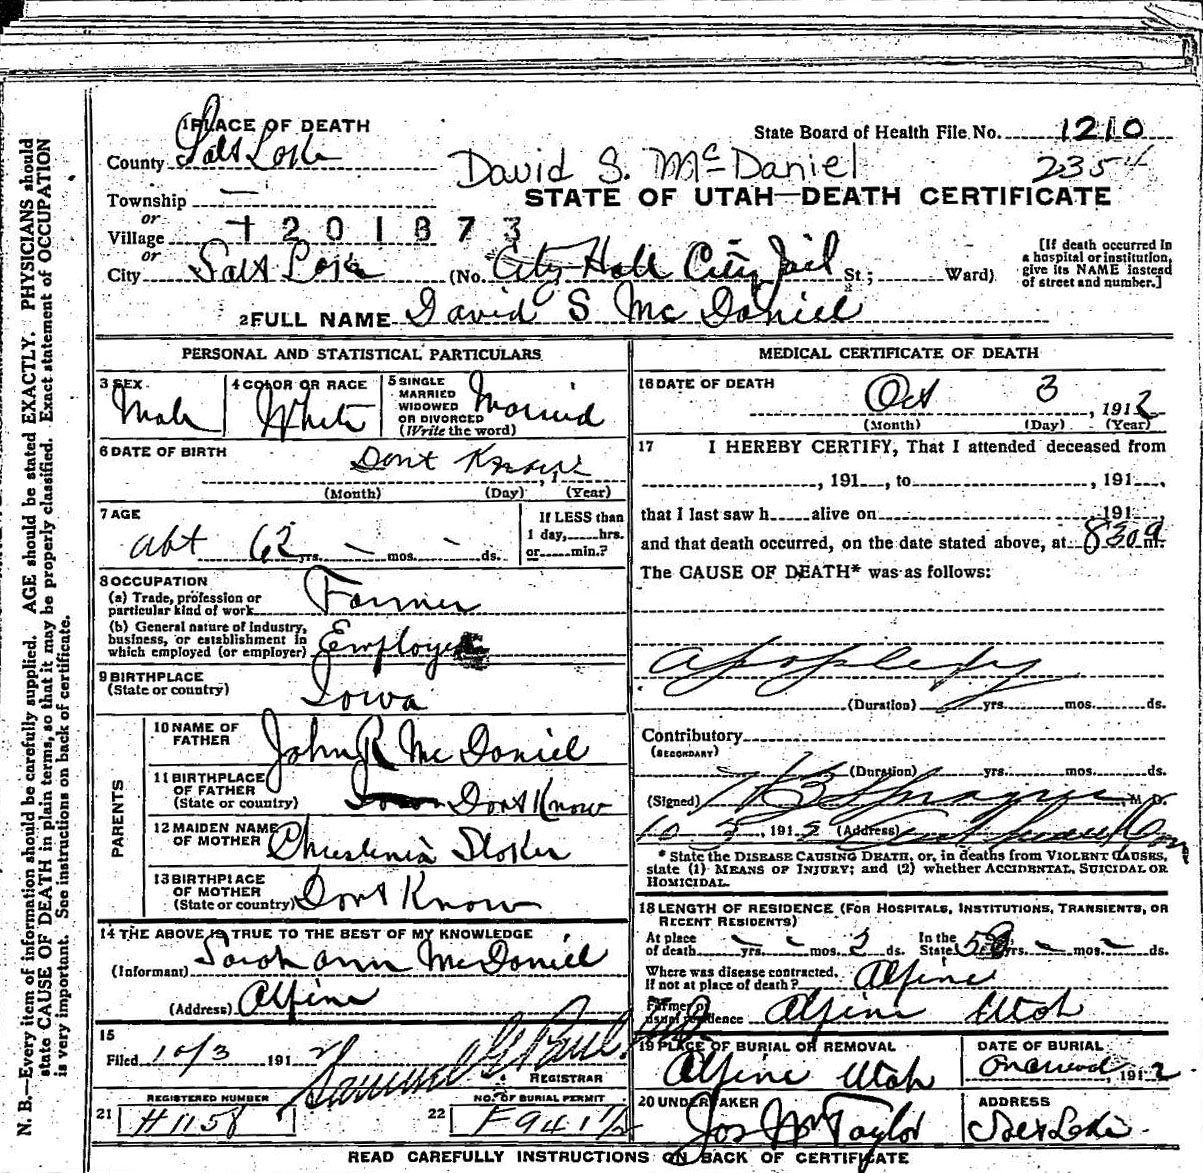 1 PLACE OF DEATH
State Board of Health File No. 1210
County Salt Lake
David S. McDaniel 2354
Township —
STATE OF UTAH—DEATH CERTIFICATE
or
Village 201873
or
City Salt Lake (No. City Hall City Jail St.; Ward)
[If death occurred in a hospital or institution, give its NAME instead of street and number.]
2 FULL NAME David S McDaniel
PERSONAL AND STATISTICAL PARTICULARS
3 SEX Male
4 COLOR OR RACE White
5 SINGLE MARRIED WIDOWED OR DIVORCED (Write the word) Married
6 DATE OF BIRTH Dont Know
(Month) (Day) (Year)
7 AGE abt 62 yrs. — mos. — ds.
If LESS than 1 day, hrs. or min.?
8 OCCUPATION
(a) Trade, profession or particular kind of work Farmer
(b) General nature of industry, business, or establishment in which employed (or employer)
9 BIRTHPLACE (State or country) Iowa
PARENTS
10 NAME OF FATHER John R McDaniel
11 BIRTHPLACE OF FATHER (State or country) Dont Know
12 MAIDEN NAME OF MOTHER Christenia Stoker
13 BIRTHPLACE OF MOTHER (State or country) Dont Know
14 THE ABOVE IS TRUE TO THE BEST OF MY KNOWLEDGE
(Informant) Sarah ann McDaniel
(Address) Alpine
15
Filed 10/3 1912
REGISTRAR
REGISTERED NUMBER
21 H1158
NO. OF BURIAL PERMIT
22 F941 1/2
MEDICAL CERTIFICATE OF DEATH
16 DATE OF DEATH
Oct 3, 1912
(Month) (Day) (Year)
17 I HEREBY CERTIFY, That I attended deceased from
, 191 , to , 191 ,
that I last saw h alive on 191 ,
and that death occurred, on the date stated above, at 8 30 a m.
The CAUSE OF DEATH* was as follows:
Apoplexy
(Duration) yrs. mos. ds.
Contributory
(SECONDARY)
(Duration) yrs. mos. ds.
(Signed) H B Sprague M. D.
10 3, 1912 (Address)
* State the DISEASE CAUSING DEATH, or, in deaths from VIOLENT CAUSES, state (1) MEANS OF INJURY; and (2) whether ACCIDENTAL, SUICIDAL OR HOMICIDAL.
18 LENGTH OF RESIDENCE (FOR HOSPITALS, INSTITUTIONS, TRANSIENTS, OR RECENT RESIDENTS)
At place of death — yrs. — mos. 2 ds. In the State yrs. — mos. — ds.
Where was disease contracted, If not at place of death? Alpine
Former or usual residence Alpine Utah
19 PLACE OF BURIAL OR REMOVAL
Alpine Utah
DATE OF BURIAL
1912
20 UNDERTAKER
Jos Wm Taylor
ADDRESS
Salt Lake
READ CAREFULLY INSTRUCTIONS ON BACK OF CERTIFICATE
N. B.—Every item of information should be carefully supplied. AGE should be stated EXACTLY. PHYSICIANS should
state CAUSE OF DEATH in plain terms, so that it may be properly classified. Exact statement of OCCUPATION
is very important. See instructions on back of certificate.